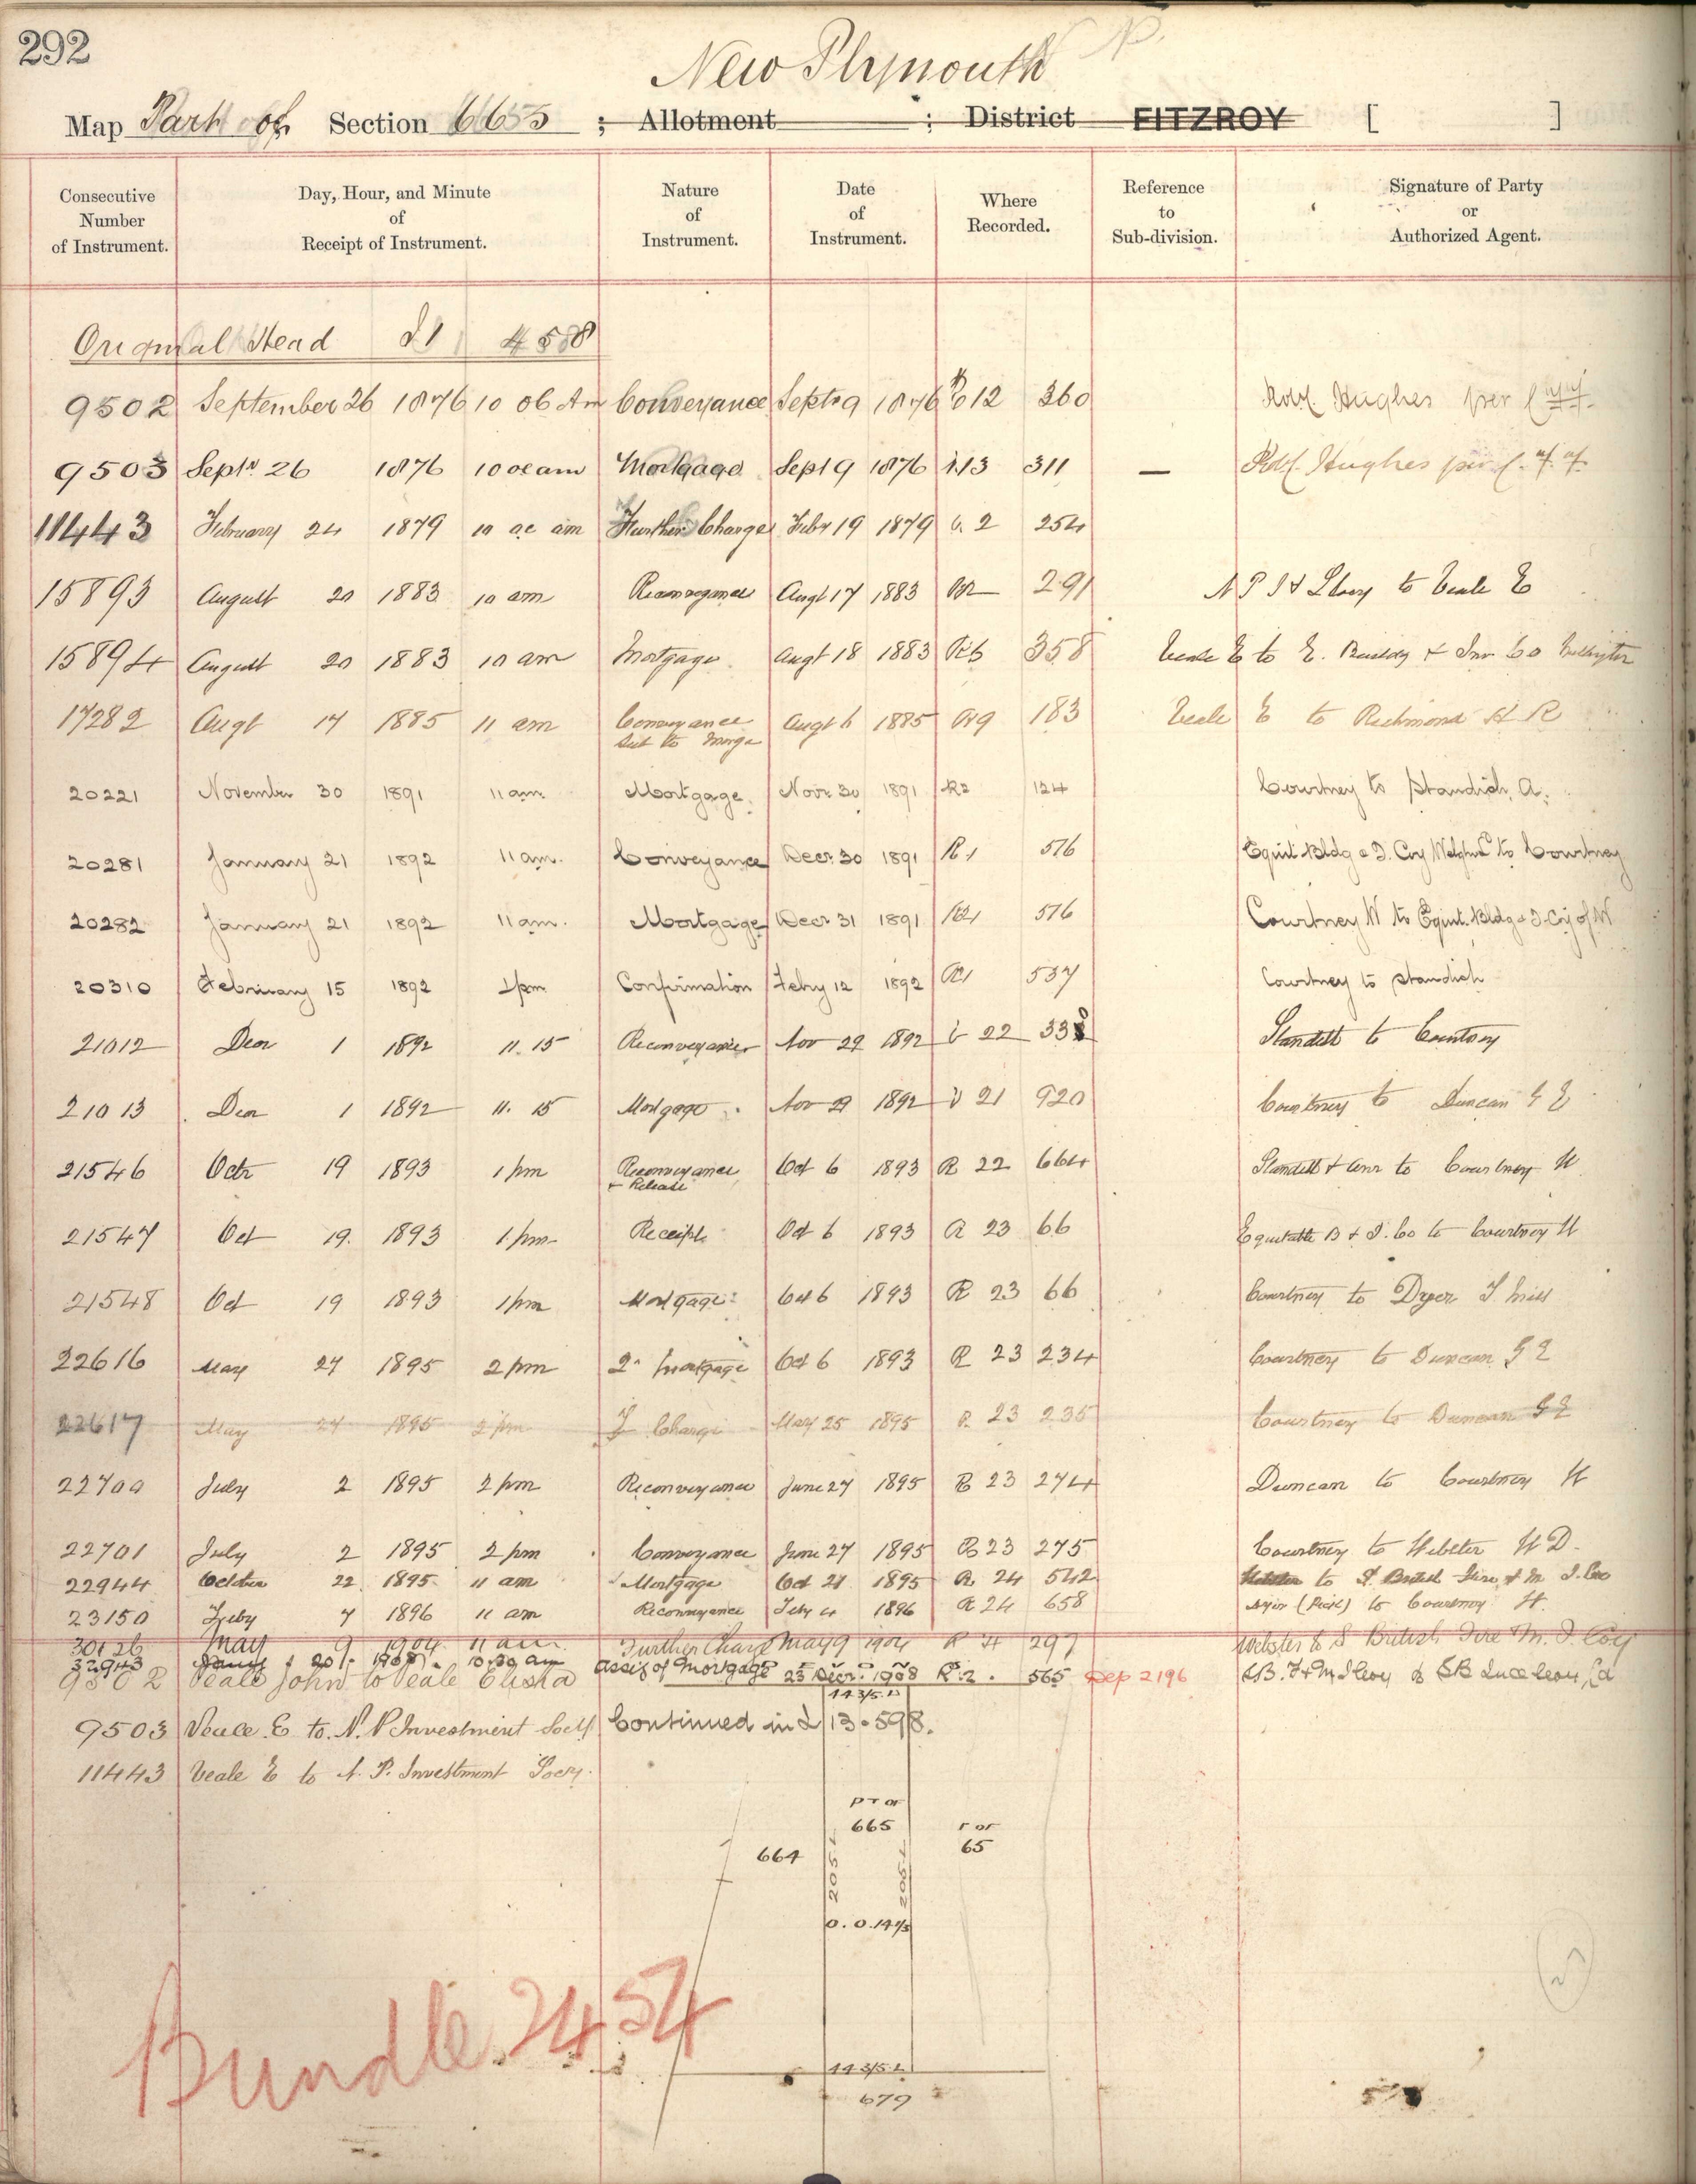 292
New Plymouth
Map Part of Section 665 ; Allotment ; District FITZROY [ ]
Consecutive Number of Instrument.
Day, Hour, and Minute of Receipt of Instrument.
Nature of Instrument.
Date of Instrument.
Where Recorded.
Reference to Sub-division.
Signature of Party or Authorized Agent.
Original Head I1 458
9502 September 26 1876 10 Am Conveyance Sept 9 1876 12 360 Hughes per
9503 Sept 26 1876 10 am Mortgage Sept 9 1876 13 311 — Hughes per
11443 February 24 1879 10 am Further Charge Feby 19 1879 2 254
15893 August 20 1883 10 am Reconveyance Augt 17 1883 291 N P I & L Socy to Veale E
15894 August 20 1883 10 am Mortgage Augt 18 1883 358 Veale E to E. Building & Inv Co Wellington
17282 Augt 17 1885 11 am Conveyance sub to Morge Augt 6 1885 183 Veale E to Richmond H R
20221 November 30 1891 11 am. Mortgage. Novr 30 1891 R2 124 Courtney to Standish, A.
20281 January 21 1892 11 am. Conveyance Decr 30 1891 R1 576 Equit. Bldg & I. Coy to Courtney
20282 January 21 1892 11 am. Mortgage Decr 31 1891 R21 576 Courtney W to Equit. Bldg & I. Coy of W
20310 February 15 1892 1 pm Confirmation Feby 12 1892 537 Courtney to Standish
21012 Decr 1 1892 11.15 Reconveyance Nov 29 1892 22 338 Standish to Courtney
21013 Decr 1 1892 11.15 Mortgage Nov 29 1892 21 920 Courtney to Duncan G E
21546 Octr 19 1893 1 pm Reconveyance & Release Oct 6 1893 R 22 664 Standish & anr to Courtney W
21547 Oct 19. 1893 1. pm Receipt Oct 6 1893 R 23 66 Equitable B & I. Co to Courtney W
21548 Oct 19 1893 1 pm Mortgage Oct 6 1893 R 23 66 Courtney to Dryer
22616 May 27 1895 2 pm 2n Mortgage Oct 6 1893 R 23 234 Courtney to Duncan G E
22617 May 27 1895 2 pm F Charge May 25 1895 R 23 235 Courtney to Duncan G E
22700 July 2 1895 2 pm Reconveyance June 27 1895 R 23 274 Duncan to Courtney W
22701 July 2 1895 2 pm Conveyance June 27 1895 R 23 275 Courtney to Webster W D.
22944 October 22 1895 11 am Mortgage Oct 21 1895 R 24 542 Webster to S. British Fire & M I. Co
23150 Feby 7 1896 11 am Reconveyance Feby 4 1896 R 24 658 to Courtney W.
30126 May 9 1904 11 am. Further Charge May 9 1904 R 4 297 Webster to S British Fire M. I. Coy
32943 20 1908 10.30 am assig of Mortgage 23 Decr. 1908 R.2. 565 Dep 2196 S.B. F & M I Coy to SB Insce Coy Ld
9502 Veale John to Veale Elisha
9503 Veale. E to. N. P Investment Socy Continued in I 13.598.
11443 Veale E to N. P. Investment Socy.
14 3/5. L
PT OF
665
664
65
205 L
205 L
0. 0. 14 4/5
14 3/5. L
679
Bundle 2454